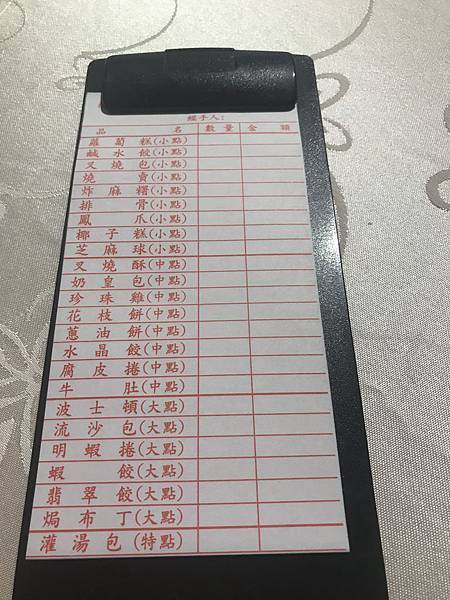 經手人：
品名 數量 金額
蘿蔔糕(小點)
鹹水餃(小點)
叉燒包(小點)
燒賣(小點)
炸麻糬(小點)
排骨(小點)
鳳爪(小點)
椰子糕(小點)
芝麻球(小點)
叉燒酥(中點)
奶皇包(中點)
珍珠雞(中點)
花枝餅(中點)
蔥油餅(中點)
水晶餃(中點)
腐皮捲(中點)
牛肚(中點)
波士頓(大點)
流沙包(大點)
明蝦捲(大點)
蝦餃(大點)
翡翠餃(大點)
焗布丁(大點)
灌湯包(特點)